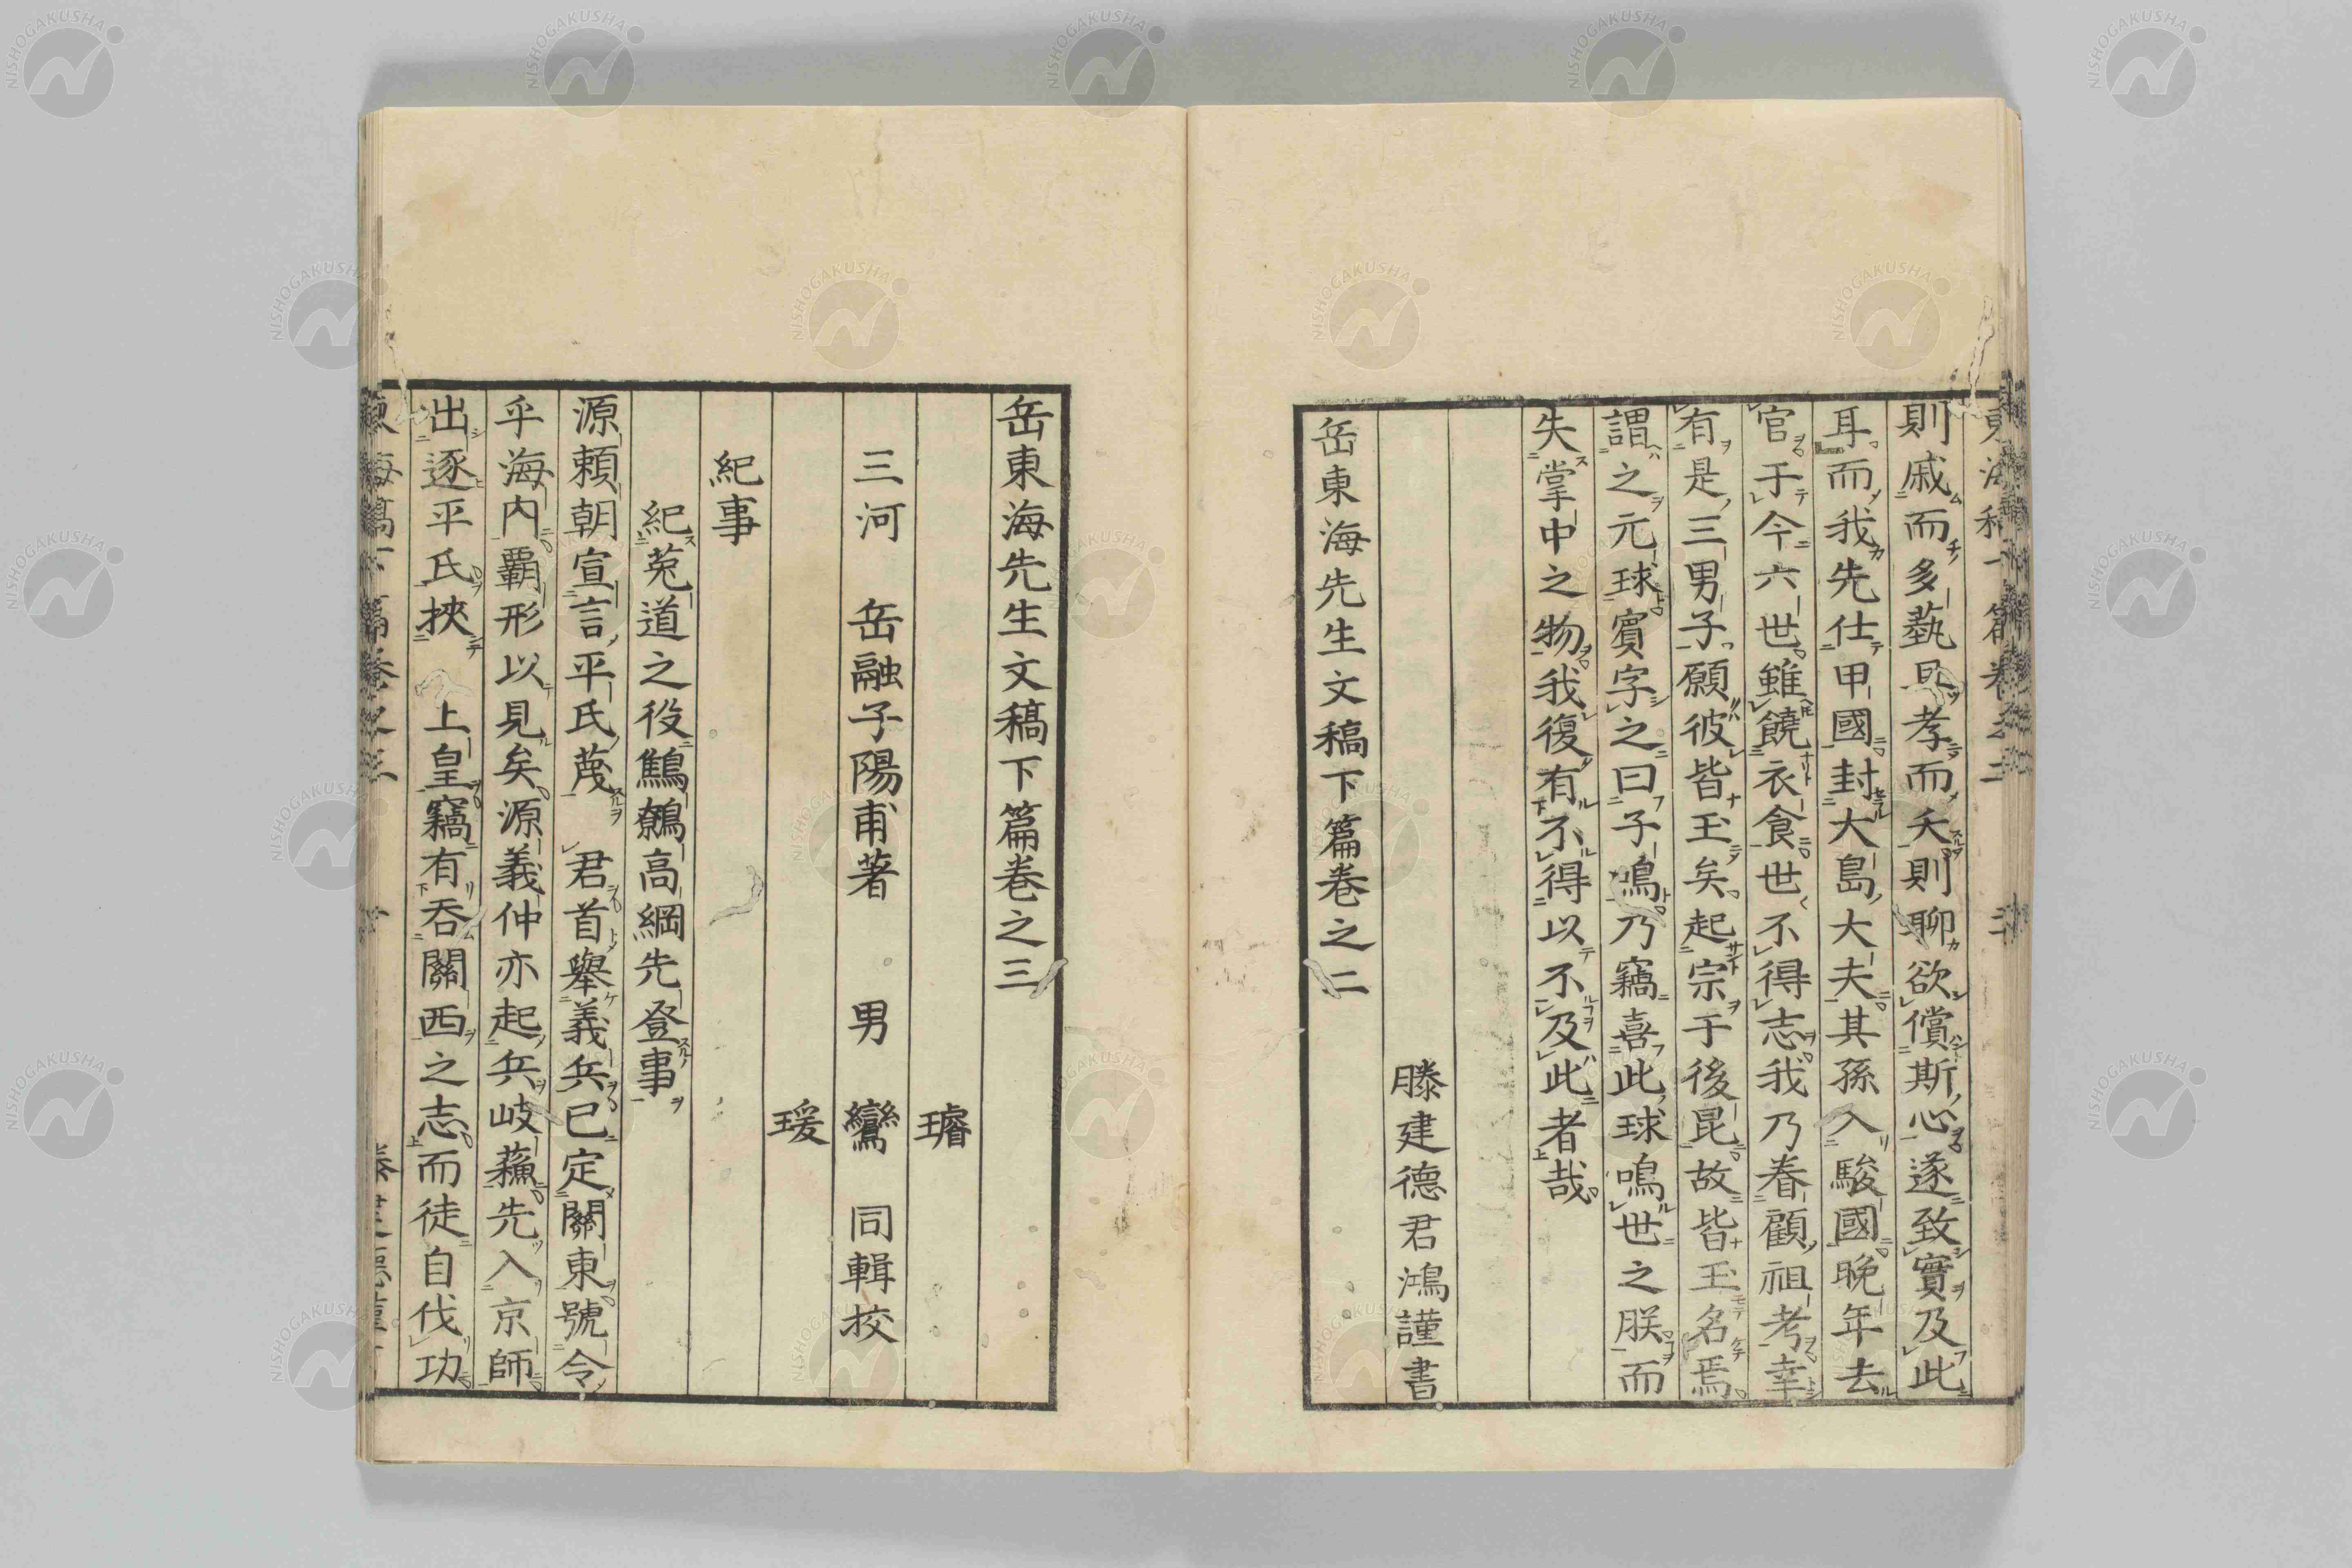 則戚而多藝且孝而夭則聊欲償斯心遂致實及此
耳而我先仕甲國封大島大夫其孫入駿國晚年去
官于今六世雖饒衣食世不得志我乃眷顧祖考幸
有是三男子願彼皆玉矣起宗于後昆故皆玉名焉
謂之元球賓字之曰子鳴乃竊喜此球鳴世之朕而
失掌中之物我復有不得以不及此者哉
滕建德君鴻謹書
岳東海先生文稿下篇卷之二
岳東海先生文稿下篇卷之三
璿
三河 岳融子陽甫著 男 鸞 同輯挍
瑗
紀事
紀菟道之役鷦鷯高綱先登事
源賴朝宣言平氏蔑 君首舉義兵已定關東號令
乎海內霸形以見矣源義仲亦起兵岐蘓先入京師
出逐平氏挾 上皇竊有吞關西之志而徒自伐功
NISHOGAKUSHA